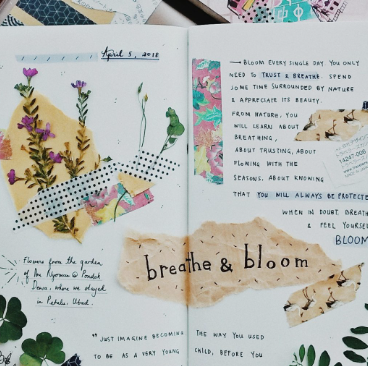 April 5, 2018
→ BLOOM EVERY SINGLE DAY. YOU ONLY
NEED TO TRUST & BREATHE. SPEND
SOME TIME SURROUNDED BY NATURE
& APPRECIATE ITS BEAUTY.
FROM NATURE, YOU
WILL LEARN ABOUT
BREATHING,
ABOUT TRUSTING, ABOUT
FLOWING WITH THE
SEASONS, ABOUT KNOWING
THAT YOU WILL ALWAYS BE PROTECTE
WHEN IN DOUBT, BREATH
& FEEL YOURSEL
BLOOM
Flowers from the garden
of
where we stayed
in Ubud.
breathe & bloom
"JUST IMAGINE BECOMING THE WAY YOU USED
TO BE AS A VERY YOUNG CHILD, BEFORE YOU